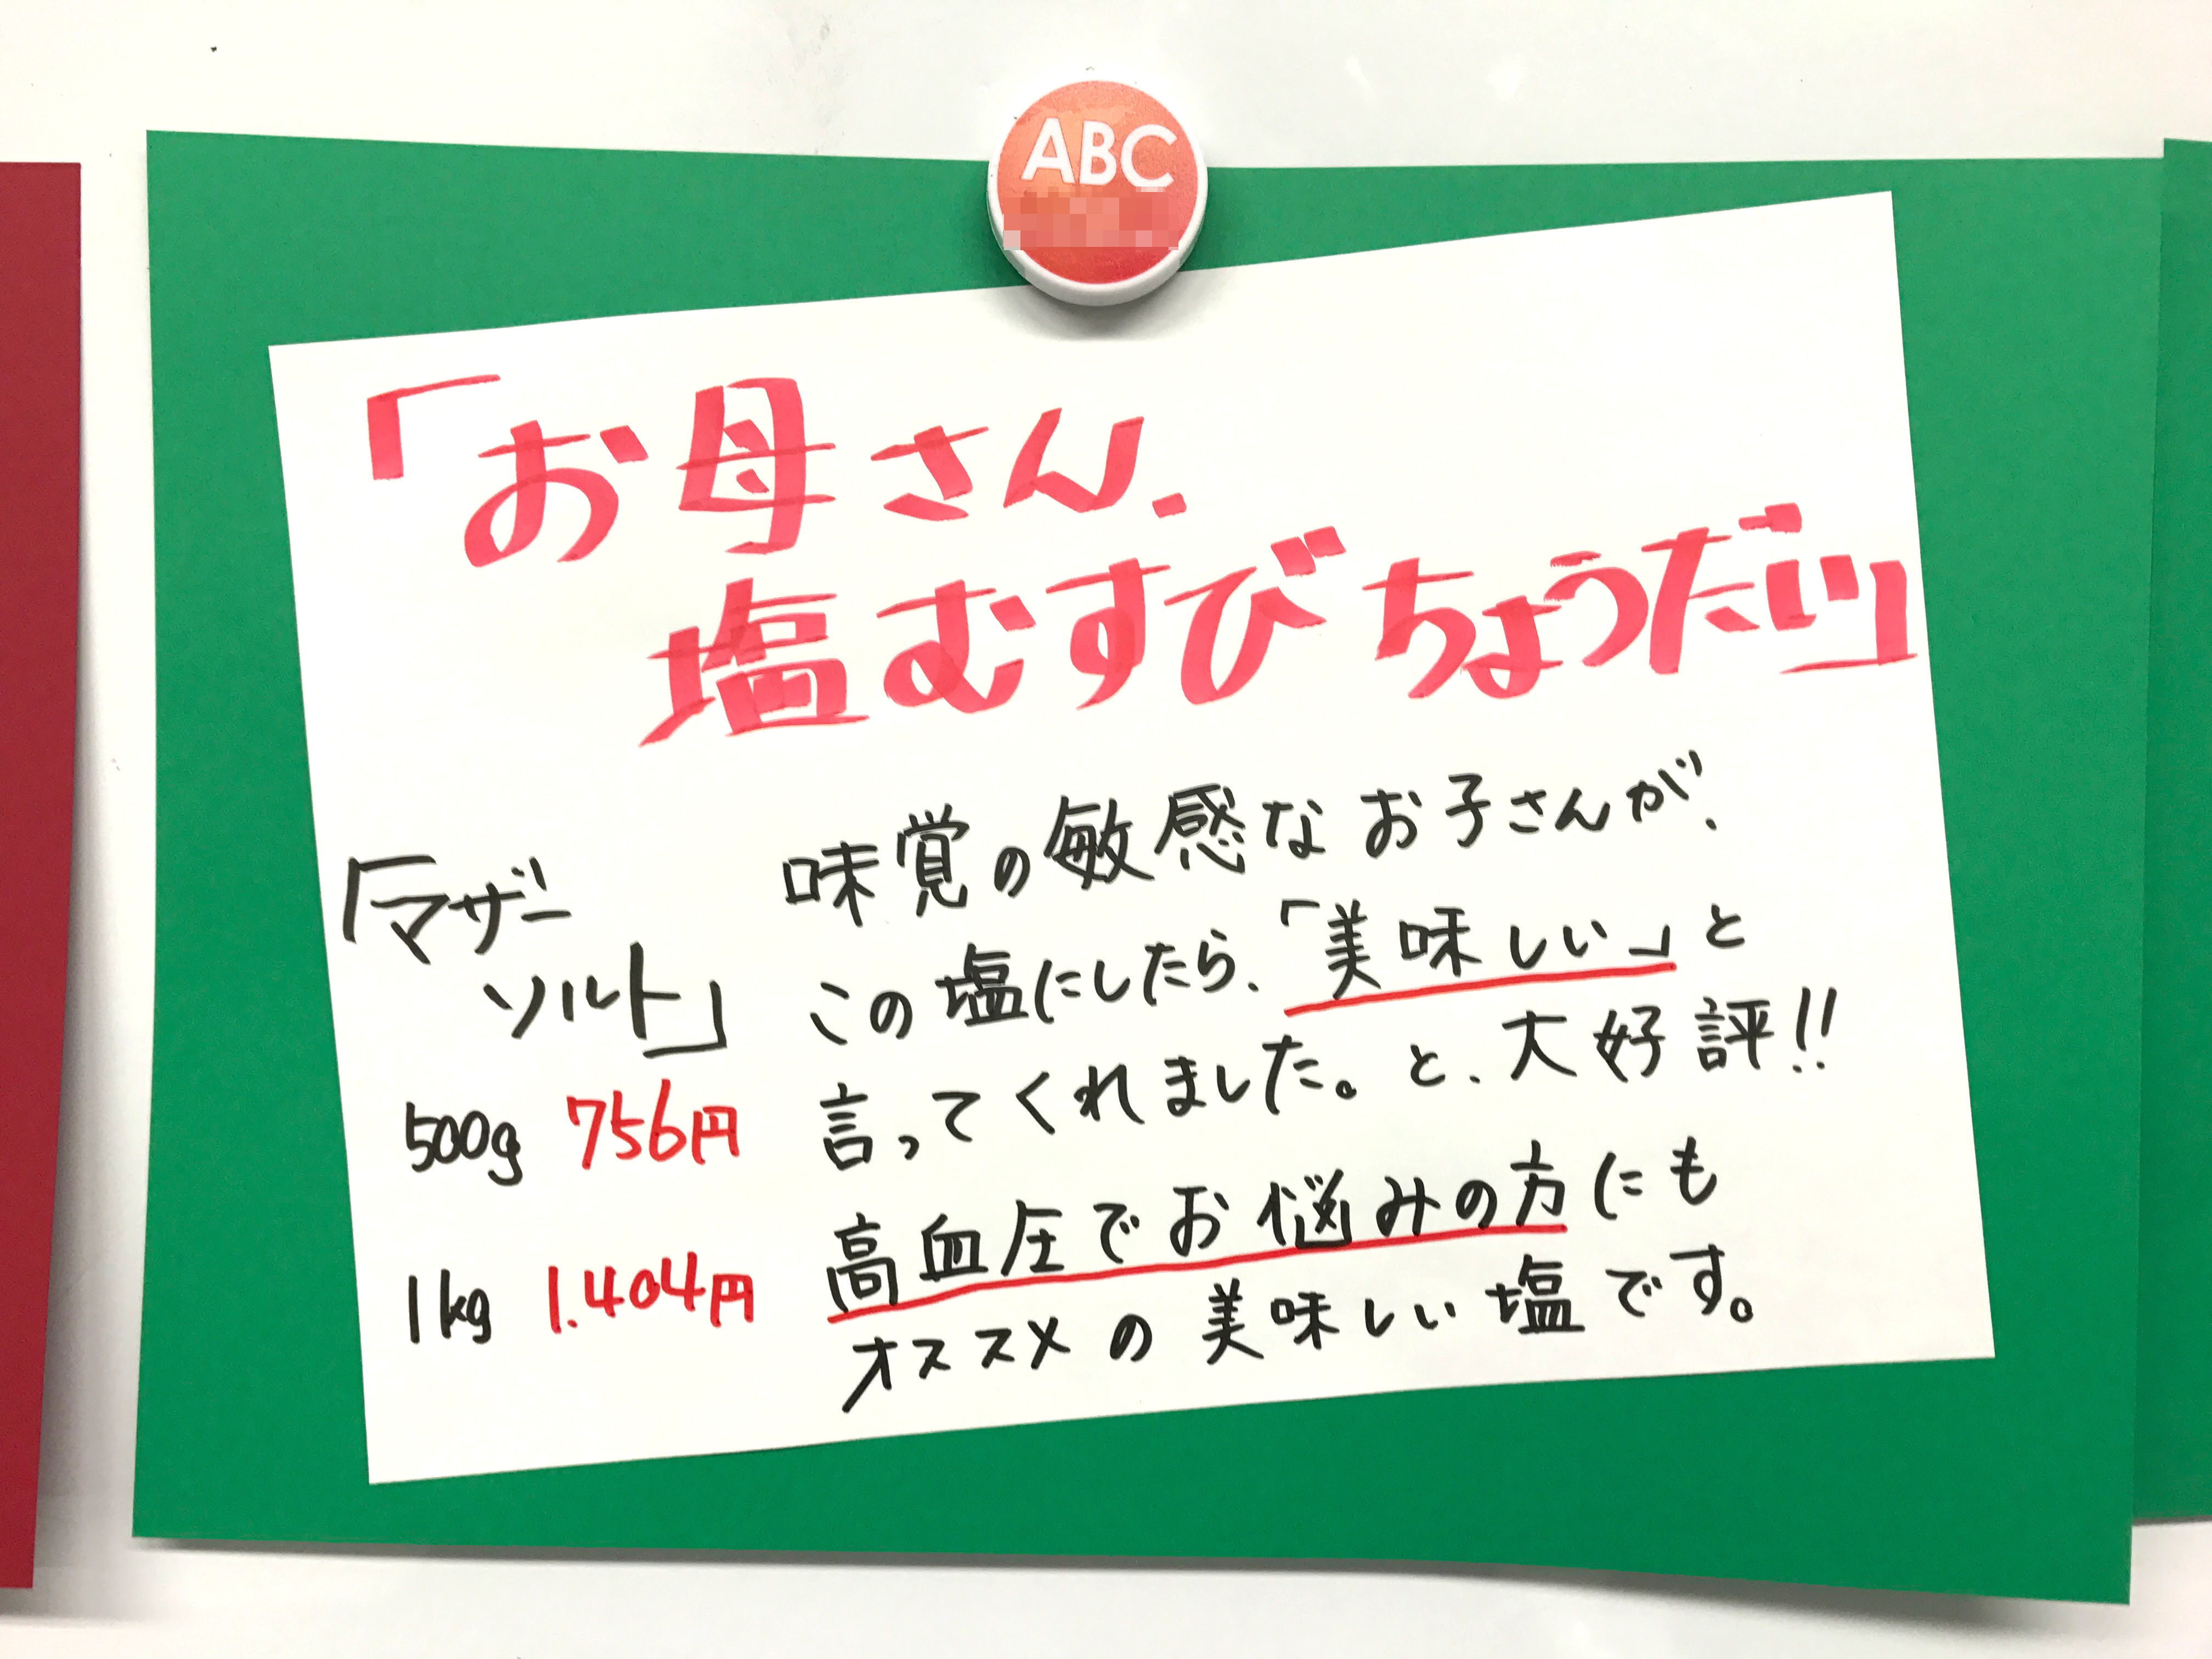 ABC
「お母さん、
塩むすびちょうだい」
「マザー
ソルト」
500g 756円
1kg 1.404円
味覚の敏感なお子さんが、
この塩にしたら、「美味しい」と
言ってくれました。と、大好評!!
高血圧でお悩みの方にも
オススメの美味しい塩です。